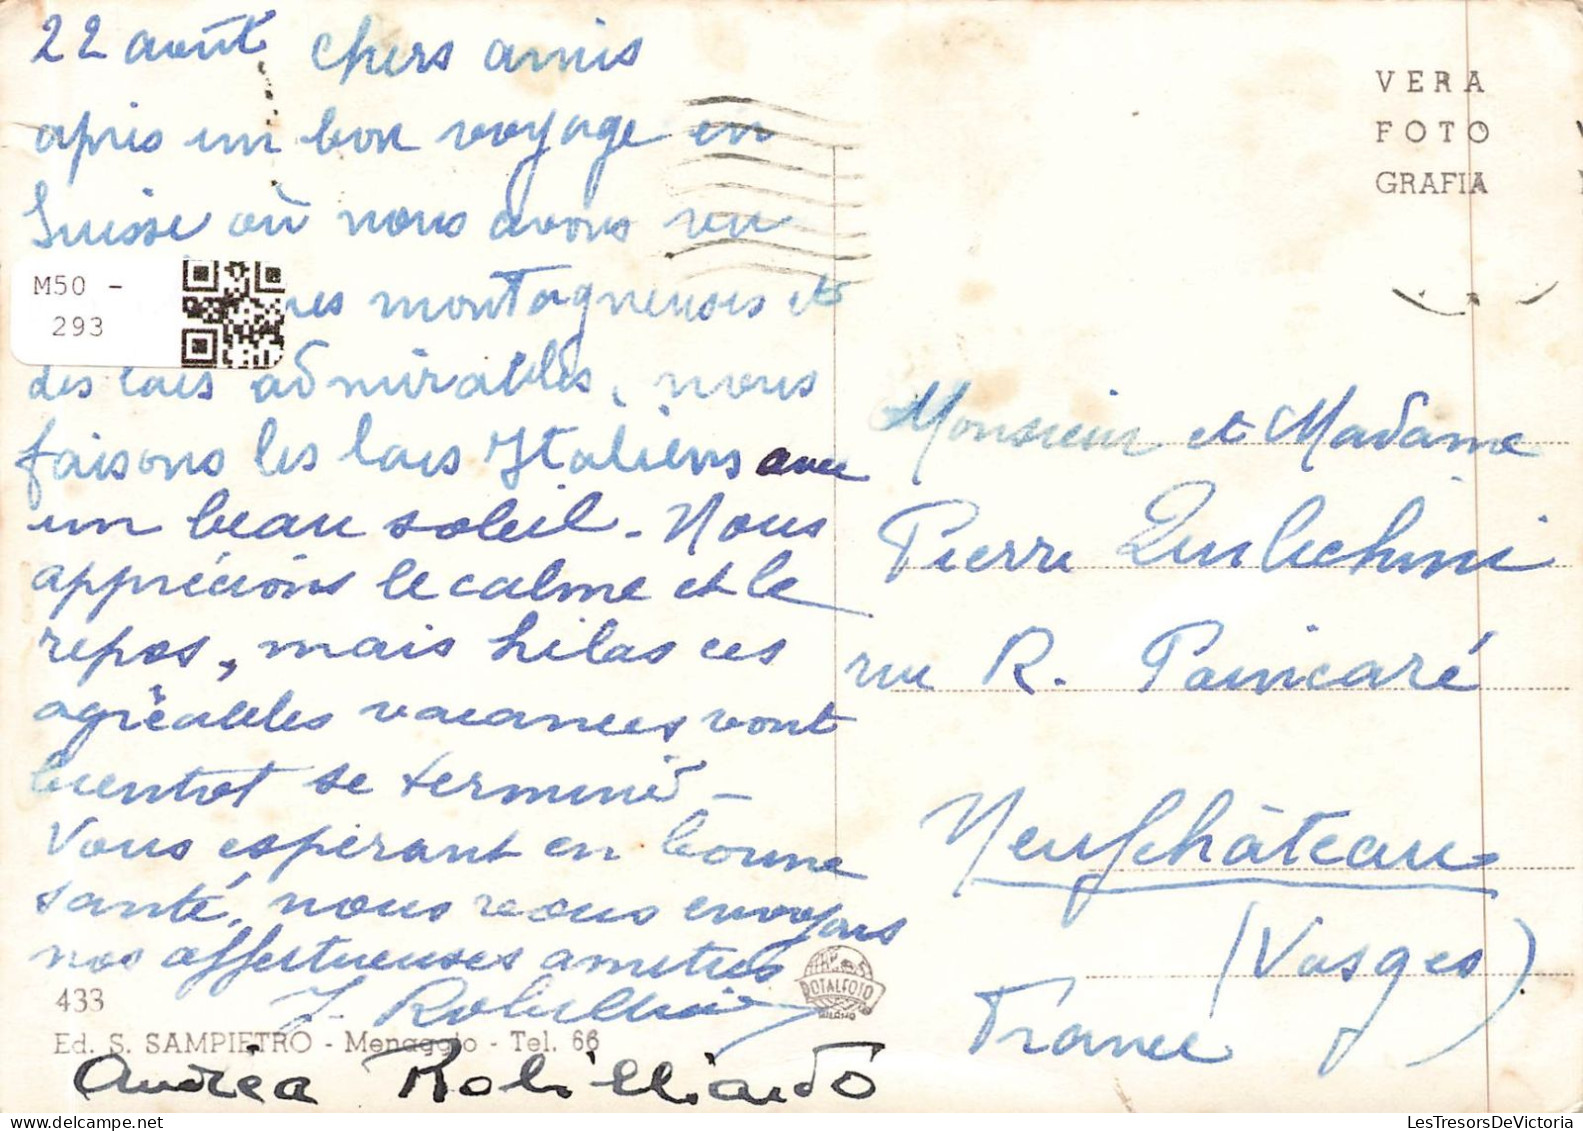 22 août, chers amis
après un bon voyage en
Suisse où nous avons vu
M50 -
293
montagneuses et
des lacs admirables, nous
faisons les lacs Italiens avec
un beau soleil. Nous
apprécions le calme et le
repos, mais hélas ces
agréables vacances vont
bientot se terminer -
Vous espérant en bonne
santé, nous vous envoyons
nos affectueuses amitiés
433
Ed. S. SAMPIETRO - Menaggio - Tel. 66
ROTALFOTO
MILANO
VERA
FOTO
GRAFIA
Monsieur et Madame
Pierre
rue R. Poincaré
Neufchâteau
(Vosges)
France
LesTresorsDeVictoria.com